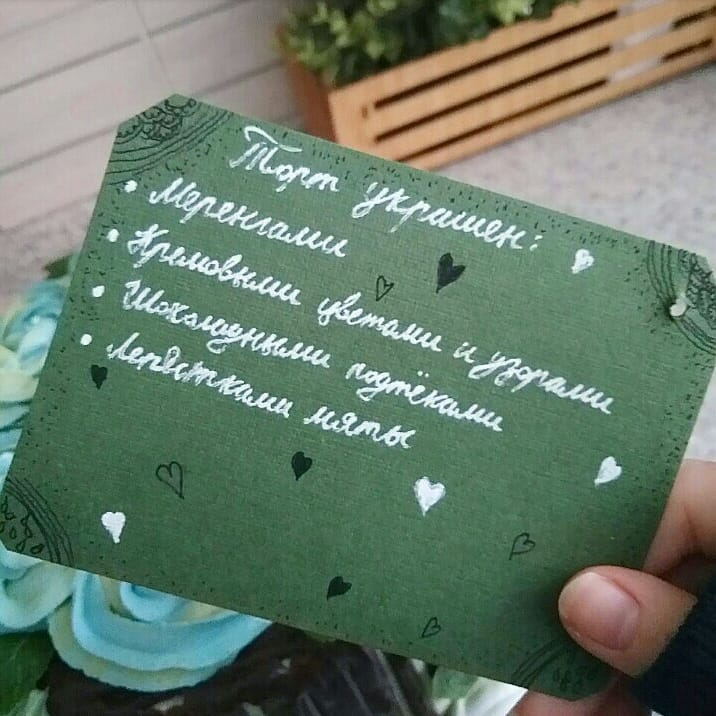 Торт украшен:
• Меренгами
• Кремовыми цветами и узорами
• Шоколадными подтёками
• Лепестками мяты